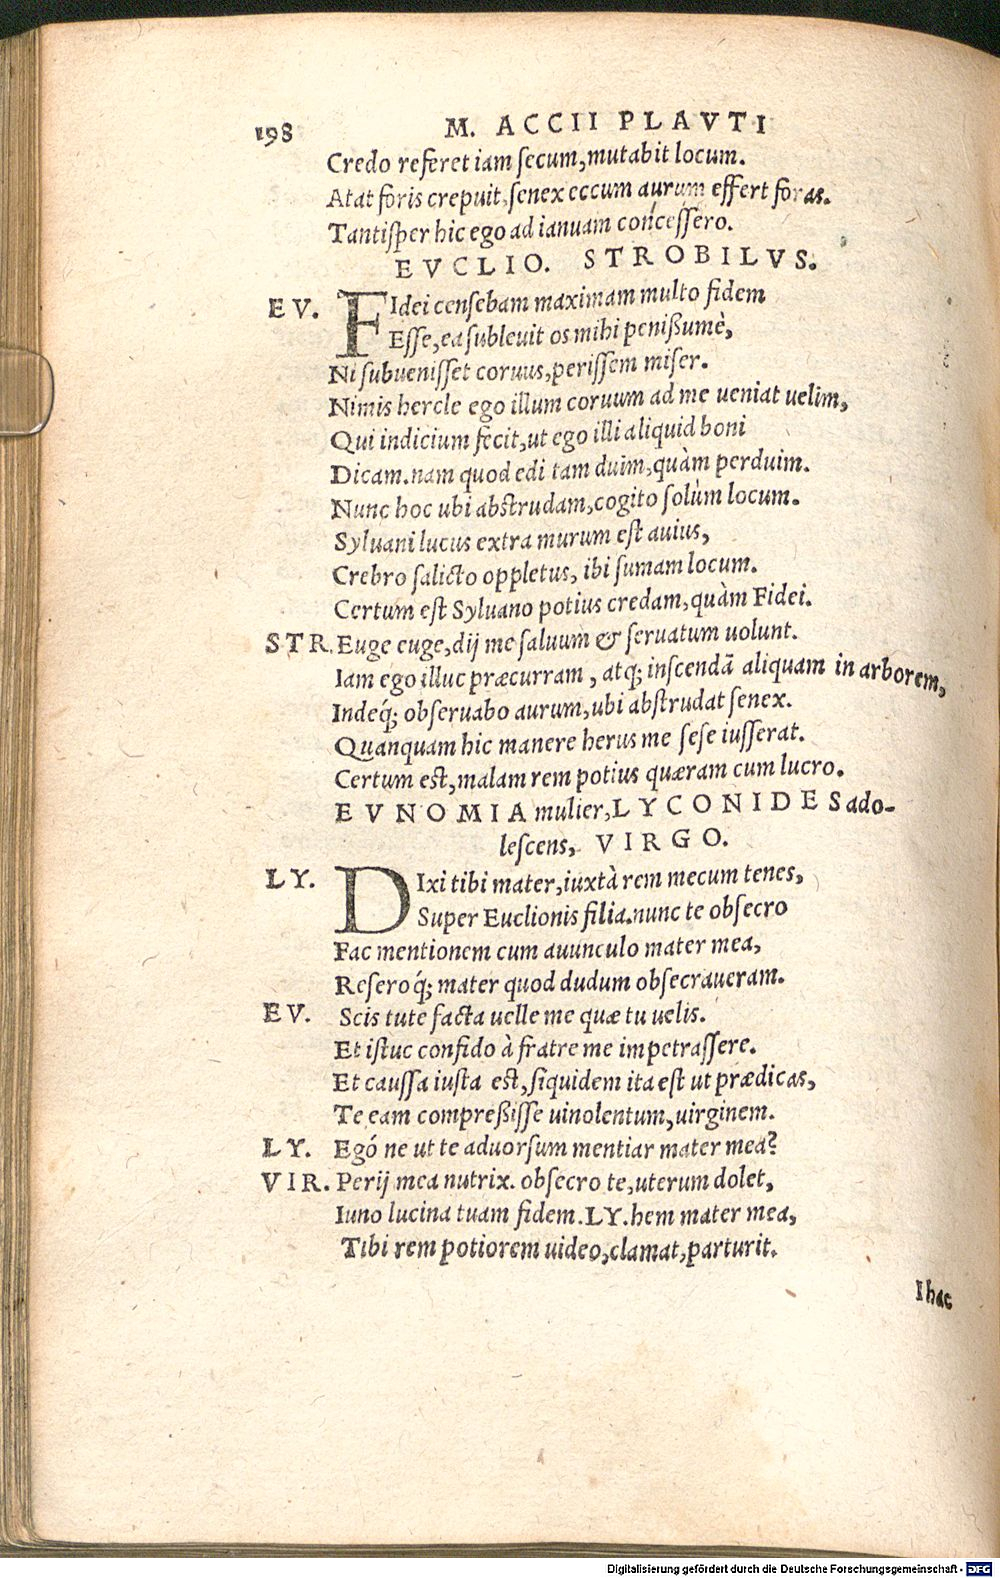 198 M. ACCII PLAVTI
Credo referet iam ſecum, mutabit locum.
Atat foris crepuit, ſenex eccum aurum effert foras.
Tantiſper hic ego ad ianuam conceſſero.
EVCLIO. STROBILVS.
EV. FIdei cenſebam maximam multo fidem
Eſſe, ea subleuit os mihi penißumè,
Ni ſubueniſſet coruus, periſſem miſer.
Nimis hercle ego illum coruum ad me ueniat uelim,
Qui indicium fecit, ut ego illi aliquid boni
Dicam. nam quod edi tam duim, quàm perduim.
Nunc hoc ubi abſtrudam, cogito ſolùm locum.
Syluani lucus extra murum eſt auius,
Crebro ſalicto oppletus, ibi ſumam locum.
Certum eſt Syluano potius credam, quàm Fidei.
STR. Euge euge, dij me ſaluum & ſeruatum uolunt.
Iam ego illuc præcurram, atq; inſcendā aliquam in arborem,
Indeq́; obſeruabo aurum, ubi abſtrudat ſenex.
Quanquam hic manere herus me ſeſe iuſſerat.
Certum eſt, malam rem potius quæram cum lucro.
EVNOMIA mulier, LYCONIDES ado-
leſcens, VIRGO.
LY. DIxi tibi mater, iuxtà rem mecum tenes,
Super Euclionis filia. nunc te obſecro
Fac mentionem cum auunculo mater mea,
Reſeroq́; mater quod dudum obſecraueram.
EV. Scis tute facta uelle me quæ tu uelis.
Et iſtuc confido à fratre me impetraſſere.
Et cauſſa iuſta eſt, ſiquidem ita eſt ut prædicas,
Te eam compreßiſſe uinolentum, uirginem.
LY. Egó ne ut te aduorſum mentiar mater mea?
VIR. Perij mea nutrix. obſecro te, uterum dolet,
Iuno lucina tuam fidem. LY. hem mater mea,
Tibi rem potiorem uideo, clamat, parturit.
I hac
Digitalisierung gefördert durch die Deutsche Forschungsgemeinschaft - DFG